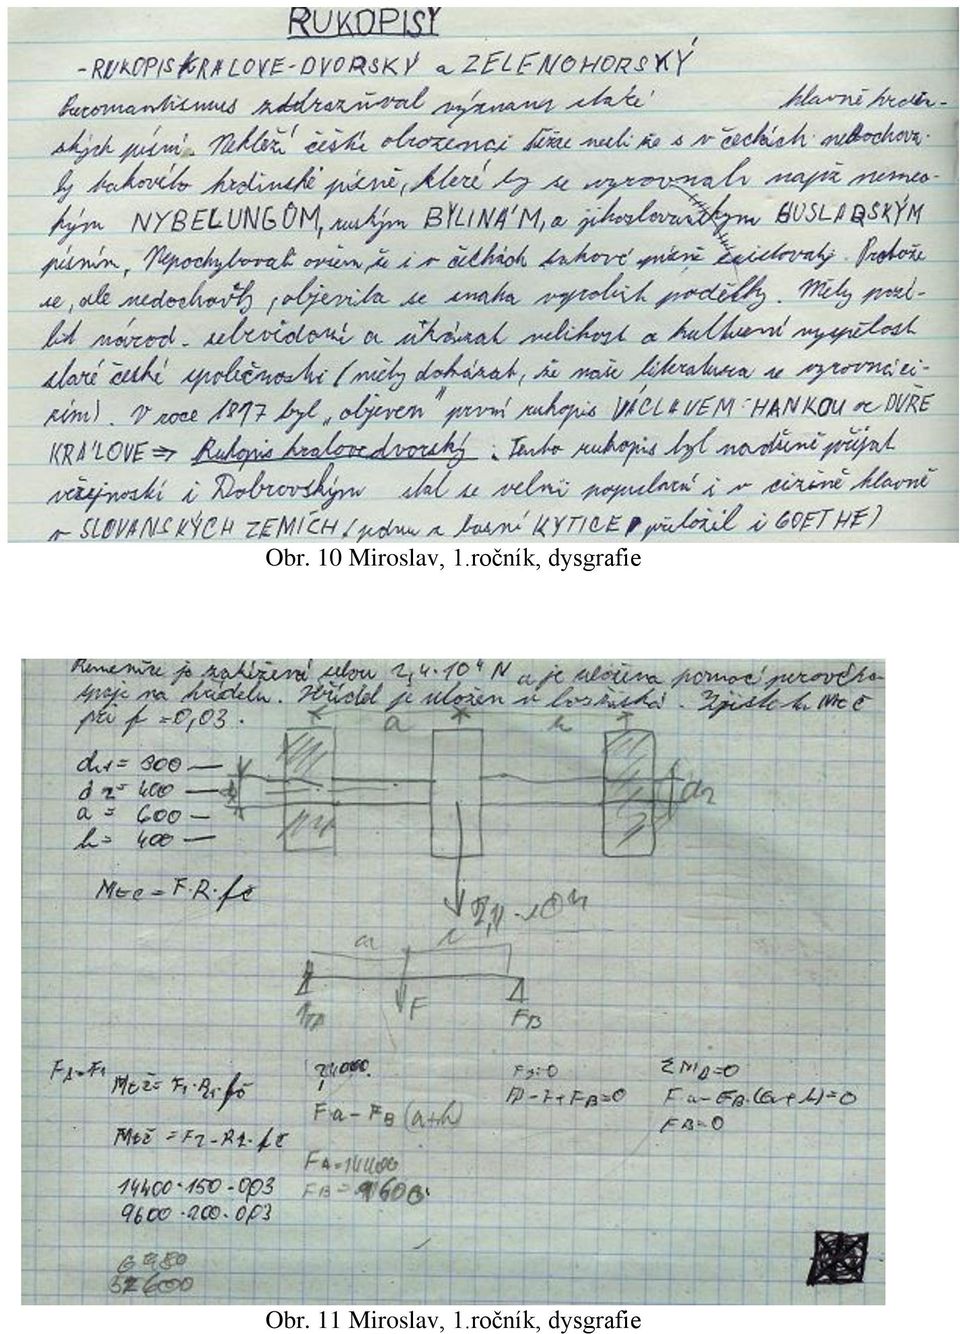 RUKOPISY
-RUKOPIS KRALOVE-DVORSKÝ a ZELENOHORSKÝ
zddrazňoval význam staré hlavně hrdin-
ských písní. čeští obrozenci těžce nesli že s v čechách nedochova-
ly takovéto hrdinské písně, které by se vyrovnali např německým
NYBELUNGŮM, ruským BYLINÁM, a jihoslovanským GUSLARSKÝM
písním, Nepochybovali ovšem, že i v čechách takové písně existovaly. Protože
se, ale nedochovaly, objevila se snaha vyrobit podělky. Měly posí-
lit národ. sebevědomí a ukázat velikost a kulturní vyspělost
staré české společnosti (měly dokázat, že naše literatura se vyrovná ci-
zím). V roce 1817 byl „objeven" první rukopis VÁCLAVEM HANKOU ve DVŘE
KRÁLOVÉ => Rukopis kralovedvorský. Tento rukopis byl nadšeně přijat
veřejností i Dobrovským stal se velmi populární i v cizině hlavně
v SLOVANSKÝCH ZEMÍCH (jednu z básní KYTICE přeložil i GOETHE)
Obr. 10 Miroslav, 1.ročník, dysgrafie
Řemenice je zatížená silou 2,4·10⁴ N a je uložena pomocí perového
spoje na hřídelu. Hřídel je uložen v ložiskách. Zjistěte Mtč
při f=0,03.
a
d1= 300 —
d2= 400 —
a = 600 —
b= 400 —
d2
Mtč = F·R·fč
a
F
FB
FA=F1
Mtč= F1·R1·fč
24000
Fy=0
ΣMA=0
F·a-FB(a+b)
FA-F+FB=0
F·a-FB·(a+b)=0
FB=0
Mtč = F2·R2·fč
FA=14400
FB=9600
14400·150·0,03
9600·200·0,03
57600
Obr. 11 Miroslav, 1.ročník, dysgrafie